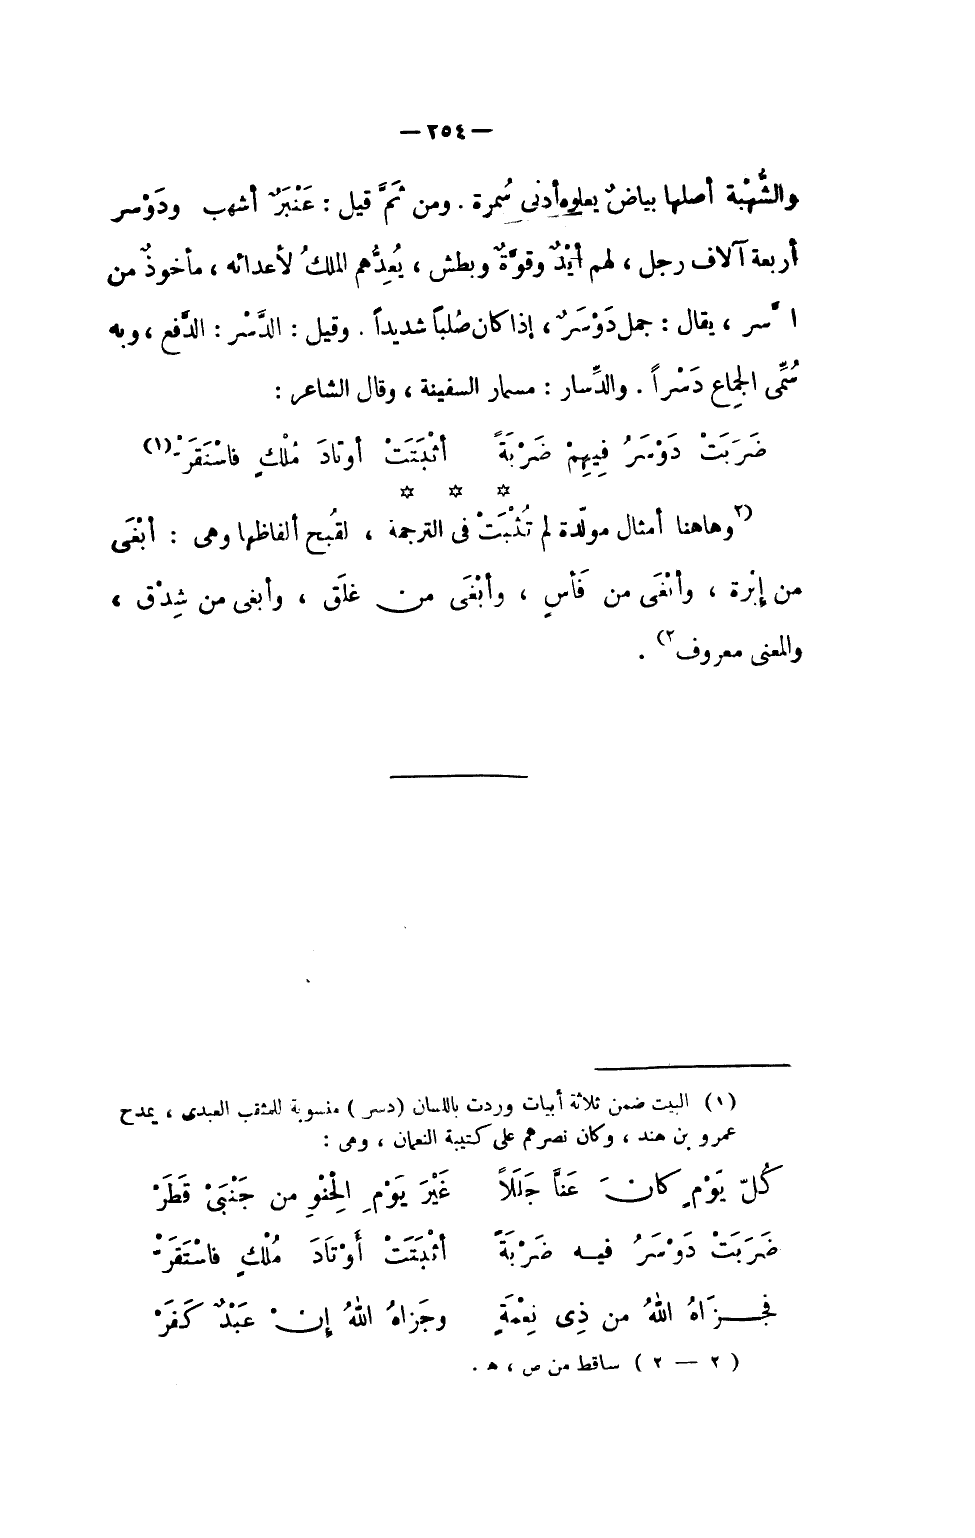 — ٢٥٤ —
والشُّهْبة أصلها بياضٌ يعلوه أدنى سُمرة . ومن ثَمَّ قيل : عَنْبَرٌ أشهب ودَوْسر
أربعة آلاف رجل ، لهم أَيْدٌ وقوَّةٌ وبطش ، يُعِدُّهم الملكُ لأعدائه ، مأخوذٌ من
ا سر ، يقال : جمل دَوْسَرٌ ، إذا كان صُلباً شديداً . وقيل : الدَّسْر : الدَّفع ، وبه
سُمِّى الجِماع دَسْراً . والدِّسار : مسمار السفينة ، وقال الشاعر :
ضَرَبَتْ دَوْسَرُ فِيهِمْ ضَرْبَةً أثْبَتَتْ أوتادَ مُلْكٍ فاسْتَقَرّْ (١)
✡ ✡ ✡
(٢ وهاهنا أمثال مولّدة لم تُثْبَتْ فى الترجمة ، لقُبح ألفاظها وهى : أبْغَى
من إبْرة ، وأبْغَى من فَأسٍ ، وأبْغَى من غلَق ، وأبغى من شِدْق ،
والمعنى معروف ٢) .
(١) البيت ضمن ثلاثة أبيات وردت باللسان (دسر) منسوبة للمثقب العبدى ، يمدح
عمرو بن هند ، وكان نصرهم على كتيبة النعمان ، وهى :
كُلّ يَوْمٍ كانَ عَنَّا جَلَلاً غَيْرَ يَوْمِ الْحِنْوِ من جَنْبَىْ قَطَرْ
ضَرَبَتْ دَوْسَرُ فيه ضَرْبَةً أثْبَتَتْ أَوْتَادَ مُلْكٍ فاسْتَقَرّْ
فجزَاهُ اللهُ من ذِى نِعْمَةٍ وجَزاهُ اللهُ إنْ عَبْدٌ كَفَرْ
(٢ — ٢) ساقط من ص ، ه .